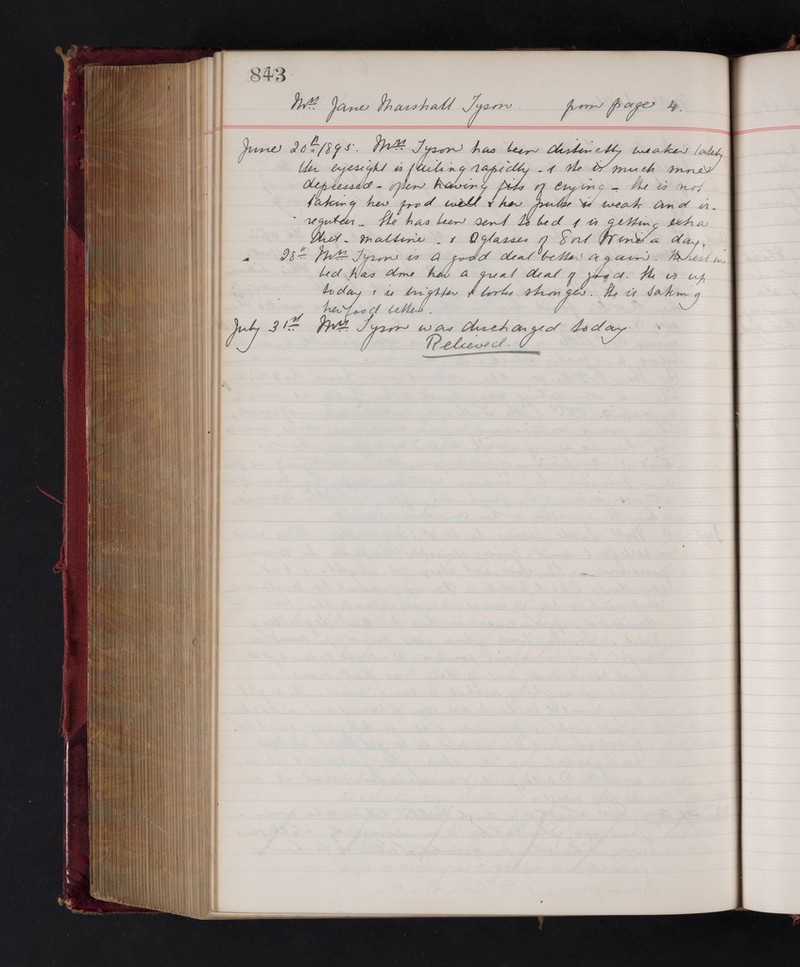 843
Mrs Jane Marshall Tyson from page 4.
June 20th/1895. Mrs Tyson has been distinctly weaker lately
Her eyesight is failing rapidly - & she is much more
depressed - often having fits of crying - She is not
taking her food well & her pulse is weak and ir-
regular - She has been sent to bed & is getting extra
diet - maltine - & 2 glasses of Port Wine a day.
" 28th Mrs Tyson is a good deal better again. The rest in
bed has done her a great deal of good. She is up
today & is brighter & looks stronger. She is taking
her food better.
July 31st Mrs Tyson was discharged today
Relieved.